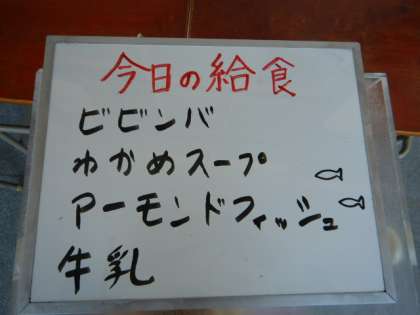 今日の給食
ビビンバ
わかめスープ
アーモンドフィッシュ
牛乳